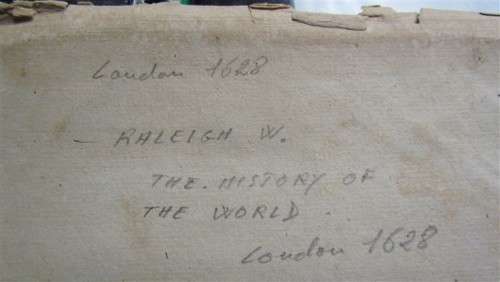 London 1628
- RALEIGH W.
THE. HISTORY OF
THE WORLD.
London 1628